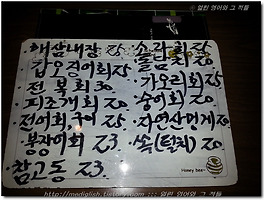 ⓒ 열린 영어와 그 적들
해삼내장 25
갑오징어회 25
전복회 30
피조개회 20
전어회,구이 25
붕장어회 23
참고동 23
소라회 25
가오리회 25
숭어회 20
자연산멍게 20
쏙(털치) 20
Honey bee~
http://mediglish.tistory.com ::: 열린 영어와 그 적들